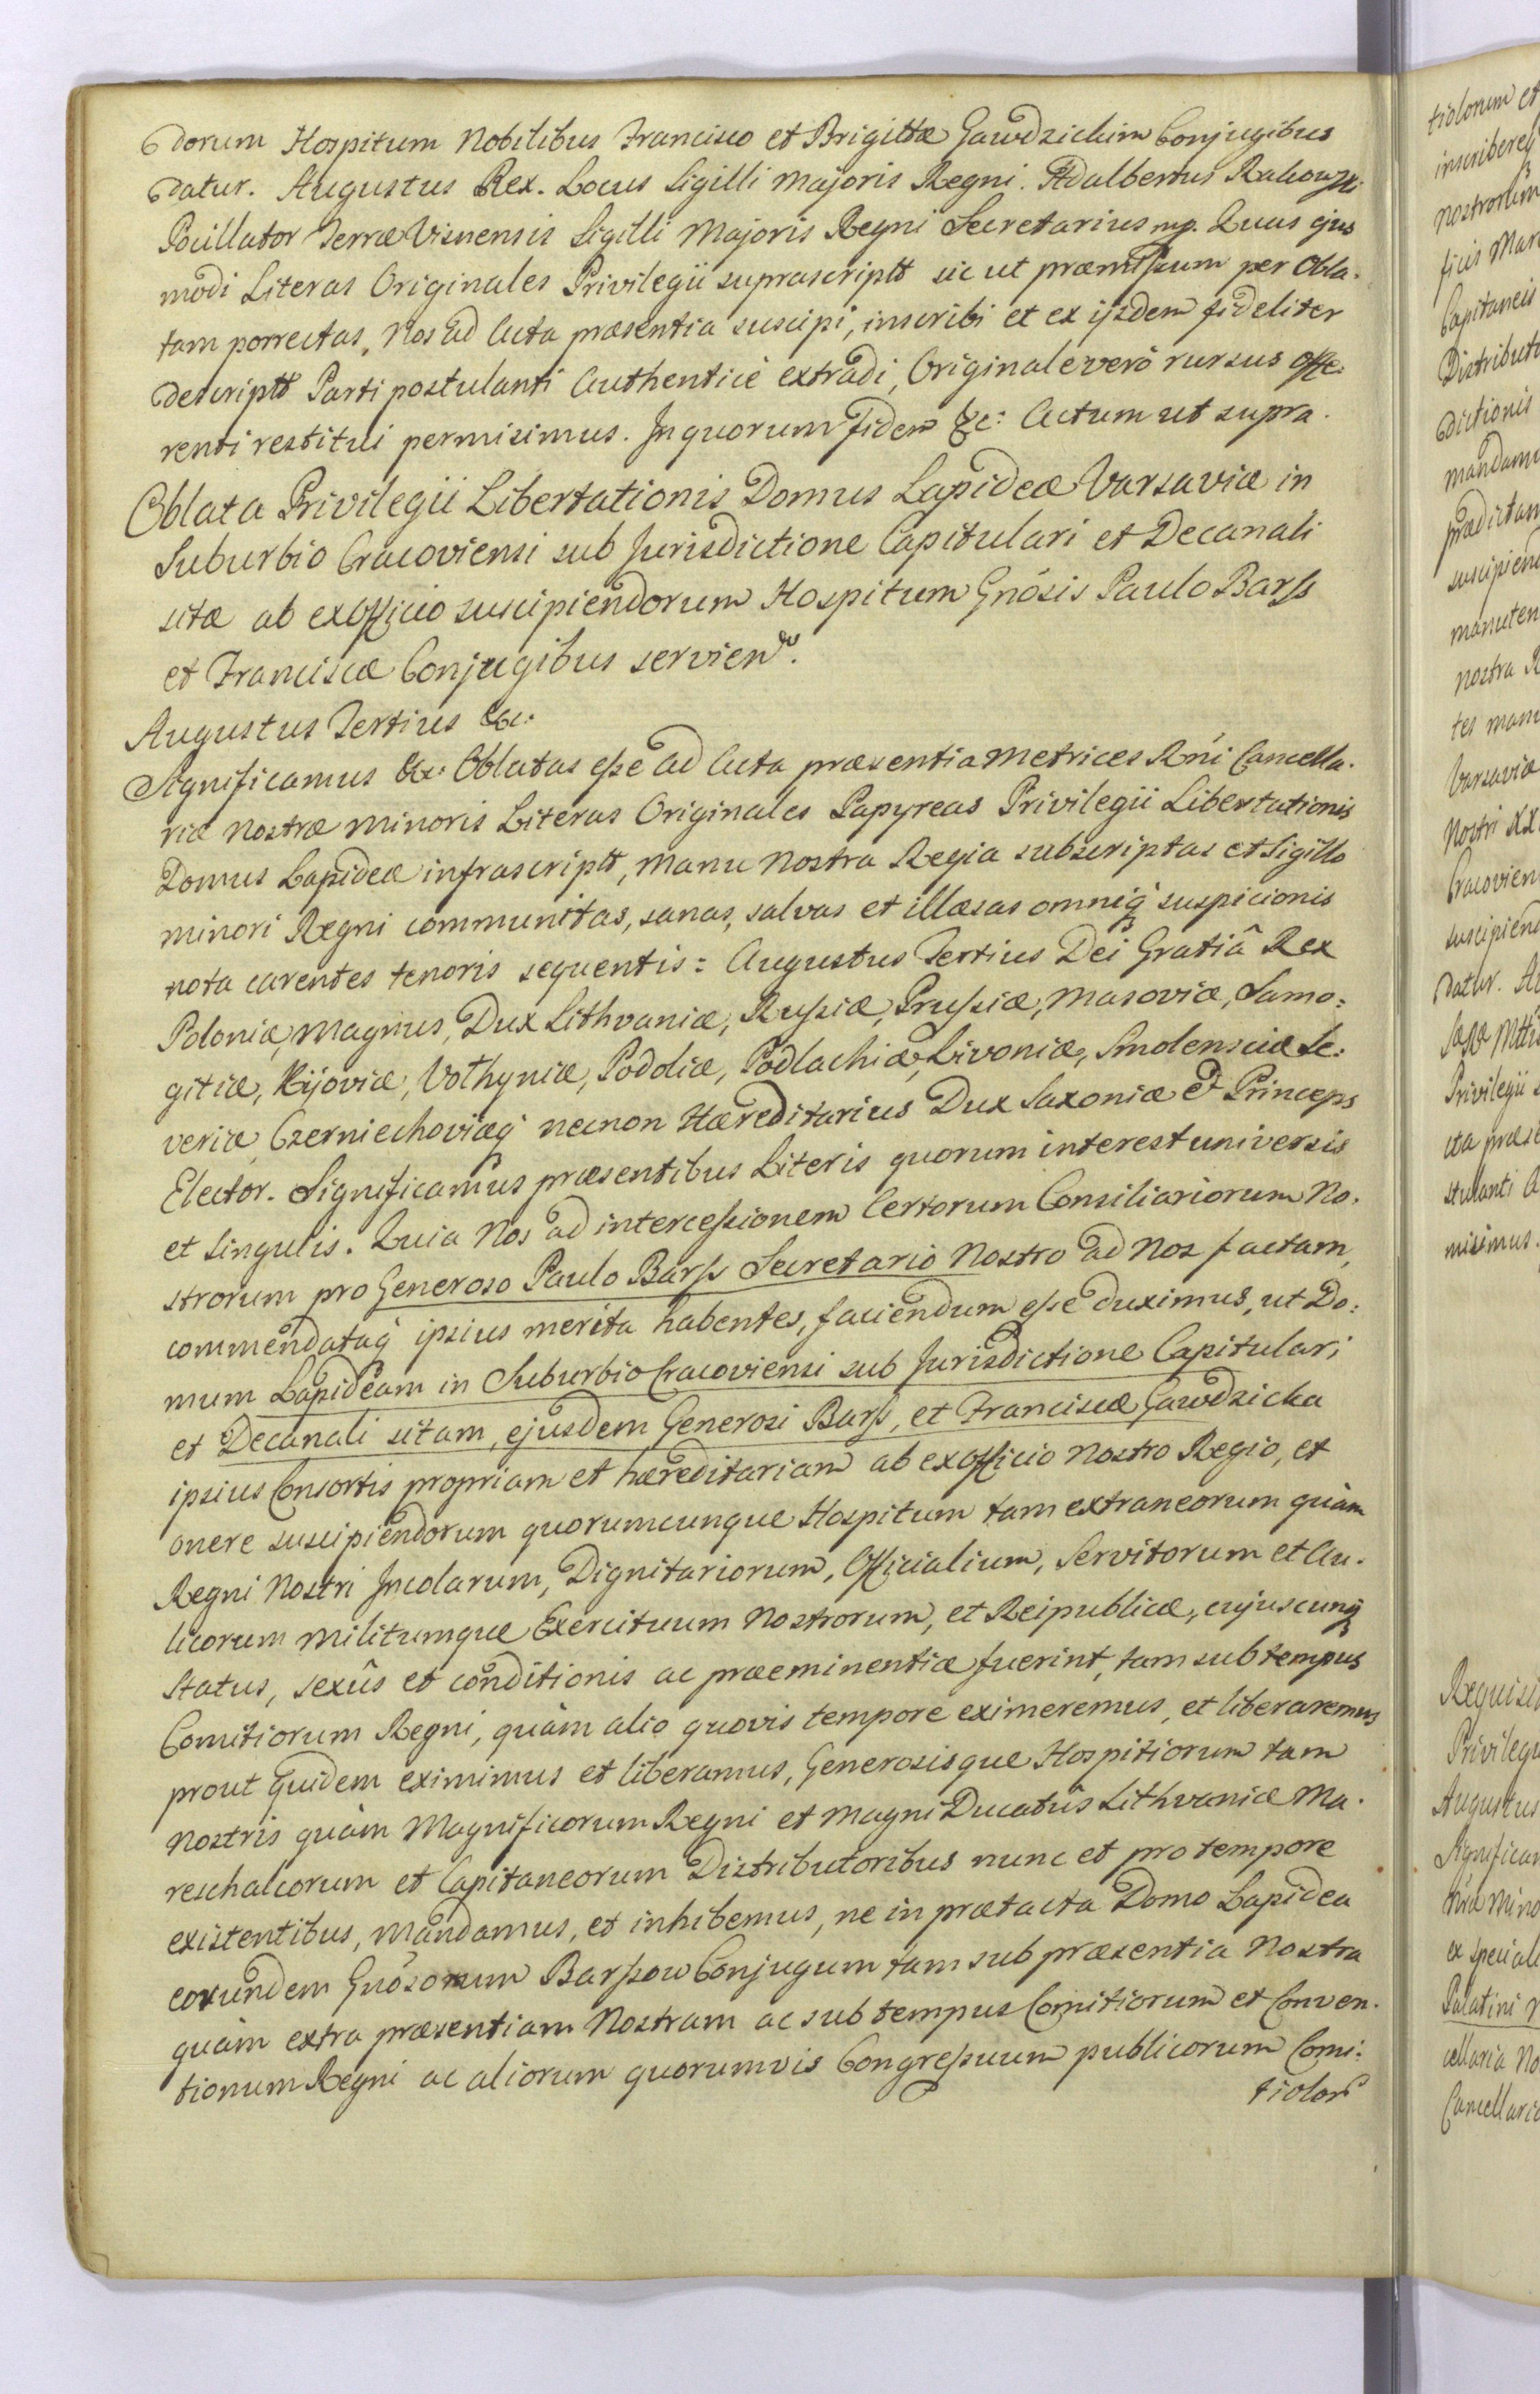 dorum Hospitum Nobilibus Francisco et Brigittæ Gawdzickim Conjugibus
datur. Augustus Rex. Locus Sigilli Majoris Regni. Adalbertus Rakowski
Pocillator Terræ Visnensis Sigilli Majoris Regni Secretarius mp. Quas ejus
modi Literas Originales Privilegii suprascriptt sic ut præmissum per Obla-
tam porrectas, Nos ad Acta præsentia suscipi, inscribi et ex ijsdem fideliter
descriptt Parti postulanti Authenticè extradi, Originale verò rursus offe:
renti restitui permisimus. In quorum Fidem &c: Actum ut supra.
Oblata Privilegii Libertationis Domus Lapideæ Varsaviæ in
Suburbio Cracoviensi sub Jurisdictione Capitulari et Decanali
sitæ ab exofficio suscipiendorum Hospitum Gnosis Paulo Barss
et Franciscæ Conjugibus servien.
Augustus Tertius &c:
Significamus &c: Oblatas esse ad Acta præsentia Metrices Rni Cancella-
riæ Nostræ Minoris Literas Originales Papyreas Privilegii Libertationis
Domus Lapideæ infrascriptt, Manu Nostra Regia subscriptas et Sigillo
minori Regni communitas, sanas, salvas et illæsas omniq suspicionis
nota carentes tenoris sequentis: Augustus Tertius Dei Gratiâ Rex
Poloniæ, Magnus, Dux Lithvaniæ, Russiæ, Prussiæ, Masoviæ, Samo:
gitiæ, Kijoviæ, Volhyniæ, Podoliæ, Podlachiæ, Livoniæ, Smolensciæ Se:
veriæ, Czerniechoviæq necnon Hæreditarius Dux Saxoniæ & Princeps
Elector. Significamus præsentibus Literis quorum interest universis
et singulis. Quia Nos ad intercessionem Certorum Consiliariorum No-
strorum pro Generoso Paulo Barss Secretario Nostro ad Nos factam,
commendataq ipsius merita habentes, faciendum esse duximus, ut Do:
mum Lapideam in Suburbio Cracoviensi sub Jurisdictione Capitulari
et Decanali sitam, ejusdem Generosi Barss, et Franciscæ Gawdzicka
ipsius Consortis propriam et hæreditariam ab exofficio Nostro Regio, et
onere suscipiendorum quorumcunque Hospitum tam extraneorum quàm
Regni Nostri Incolarum, Dignitariorum, Officialium, Servitorum et Au-
licorum Militumque Exercituum Nostrorum, et Reipublicæ, cujuscunq
Status, sexûs et conditionis ac præeminentiæ fuerint, tam sub tempus
Comitiorum Regni, quàm alio quovis tempore eximeremus, et liberaremus
prout quidem eximimus et liberamus, Generosisque Hospitiorum tam
Nostris quàm Magnificorum Regni et Magni Ducatûs Lithvaniæ Ma-
reschalcorum et Capitaneorum Distributoribus nunc et pro tempore
existentibus, Mandamus, et inhibemus, ne in prætacta Domo Lapidea
eorundem Gnosorum Barssow Conjugum tam sub præsentia Nostra
quàm extra præsentiam Nostram ac sub tempus Comitiorum et Conven-
tionum Regni ac aliorum quorumvis Congressuum publicorum Comi:
tiolor
tiolorum et
Nostrorum
Capitaneis
dictionis
suscipiend
Nostra R
Varsaviæ
Nostri
Cracovien
suscipiend
datur. Au
Privilegii
misimus.
Privilegii
Augustus
Significam
Palatini
Cancellariæ